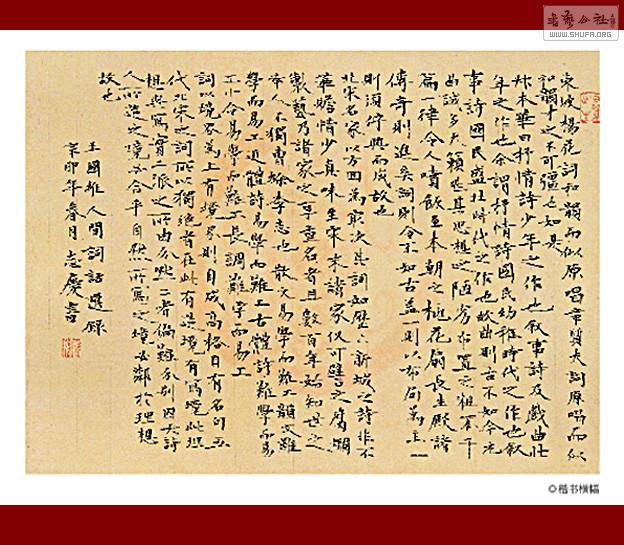 東坡楊花詞和韻而似原唱章質夫詞原唱而似
和韻才之不可彊也如是
叔本華曰抒情詩少年之作也敘事詩及戲曲壯
年之作也余謂抒情詩國民幼稚時代之作也敘
事詩國民盛壯時代之作也故曲則古不如今元
曲誠多天籟然其思想之陋劣布置之粗笨千
篇一律令人噴飯至本朝之桃花扇長生殿諸
傳奇則進矣詞則今不如古蓋一則以布局為主一
則須佇興而成故也
北宋名家以方回為最次其詞如歷下新城之詩非不
華贍惜少真味至宋末諸家僅可譬之腐爛
製藝乃諸家之享重名者且數百年始知世之
幸人不獨曹蜍李志也 散文易學而難工韻文難
學而易工近體詩易學而難工古體詩難學而易
工小令易學而難工長調難學而易工
詞以境界為上有境界則自成高格自有名句五
代北宋之詞所以獨絕者在此有造境有寫境此理
想與寫實二派之所由分然二者頗難分別因大詩
人所造之境必合乎自然所寫之境必鄰於理想
故也
王國維人間詞話選錄
辛卯年春月志慶書
WWW.SHUFA.ORG
◎楷书横幅